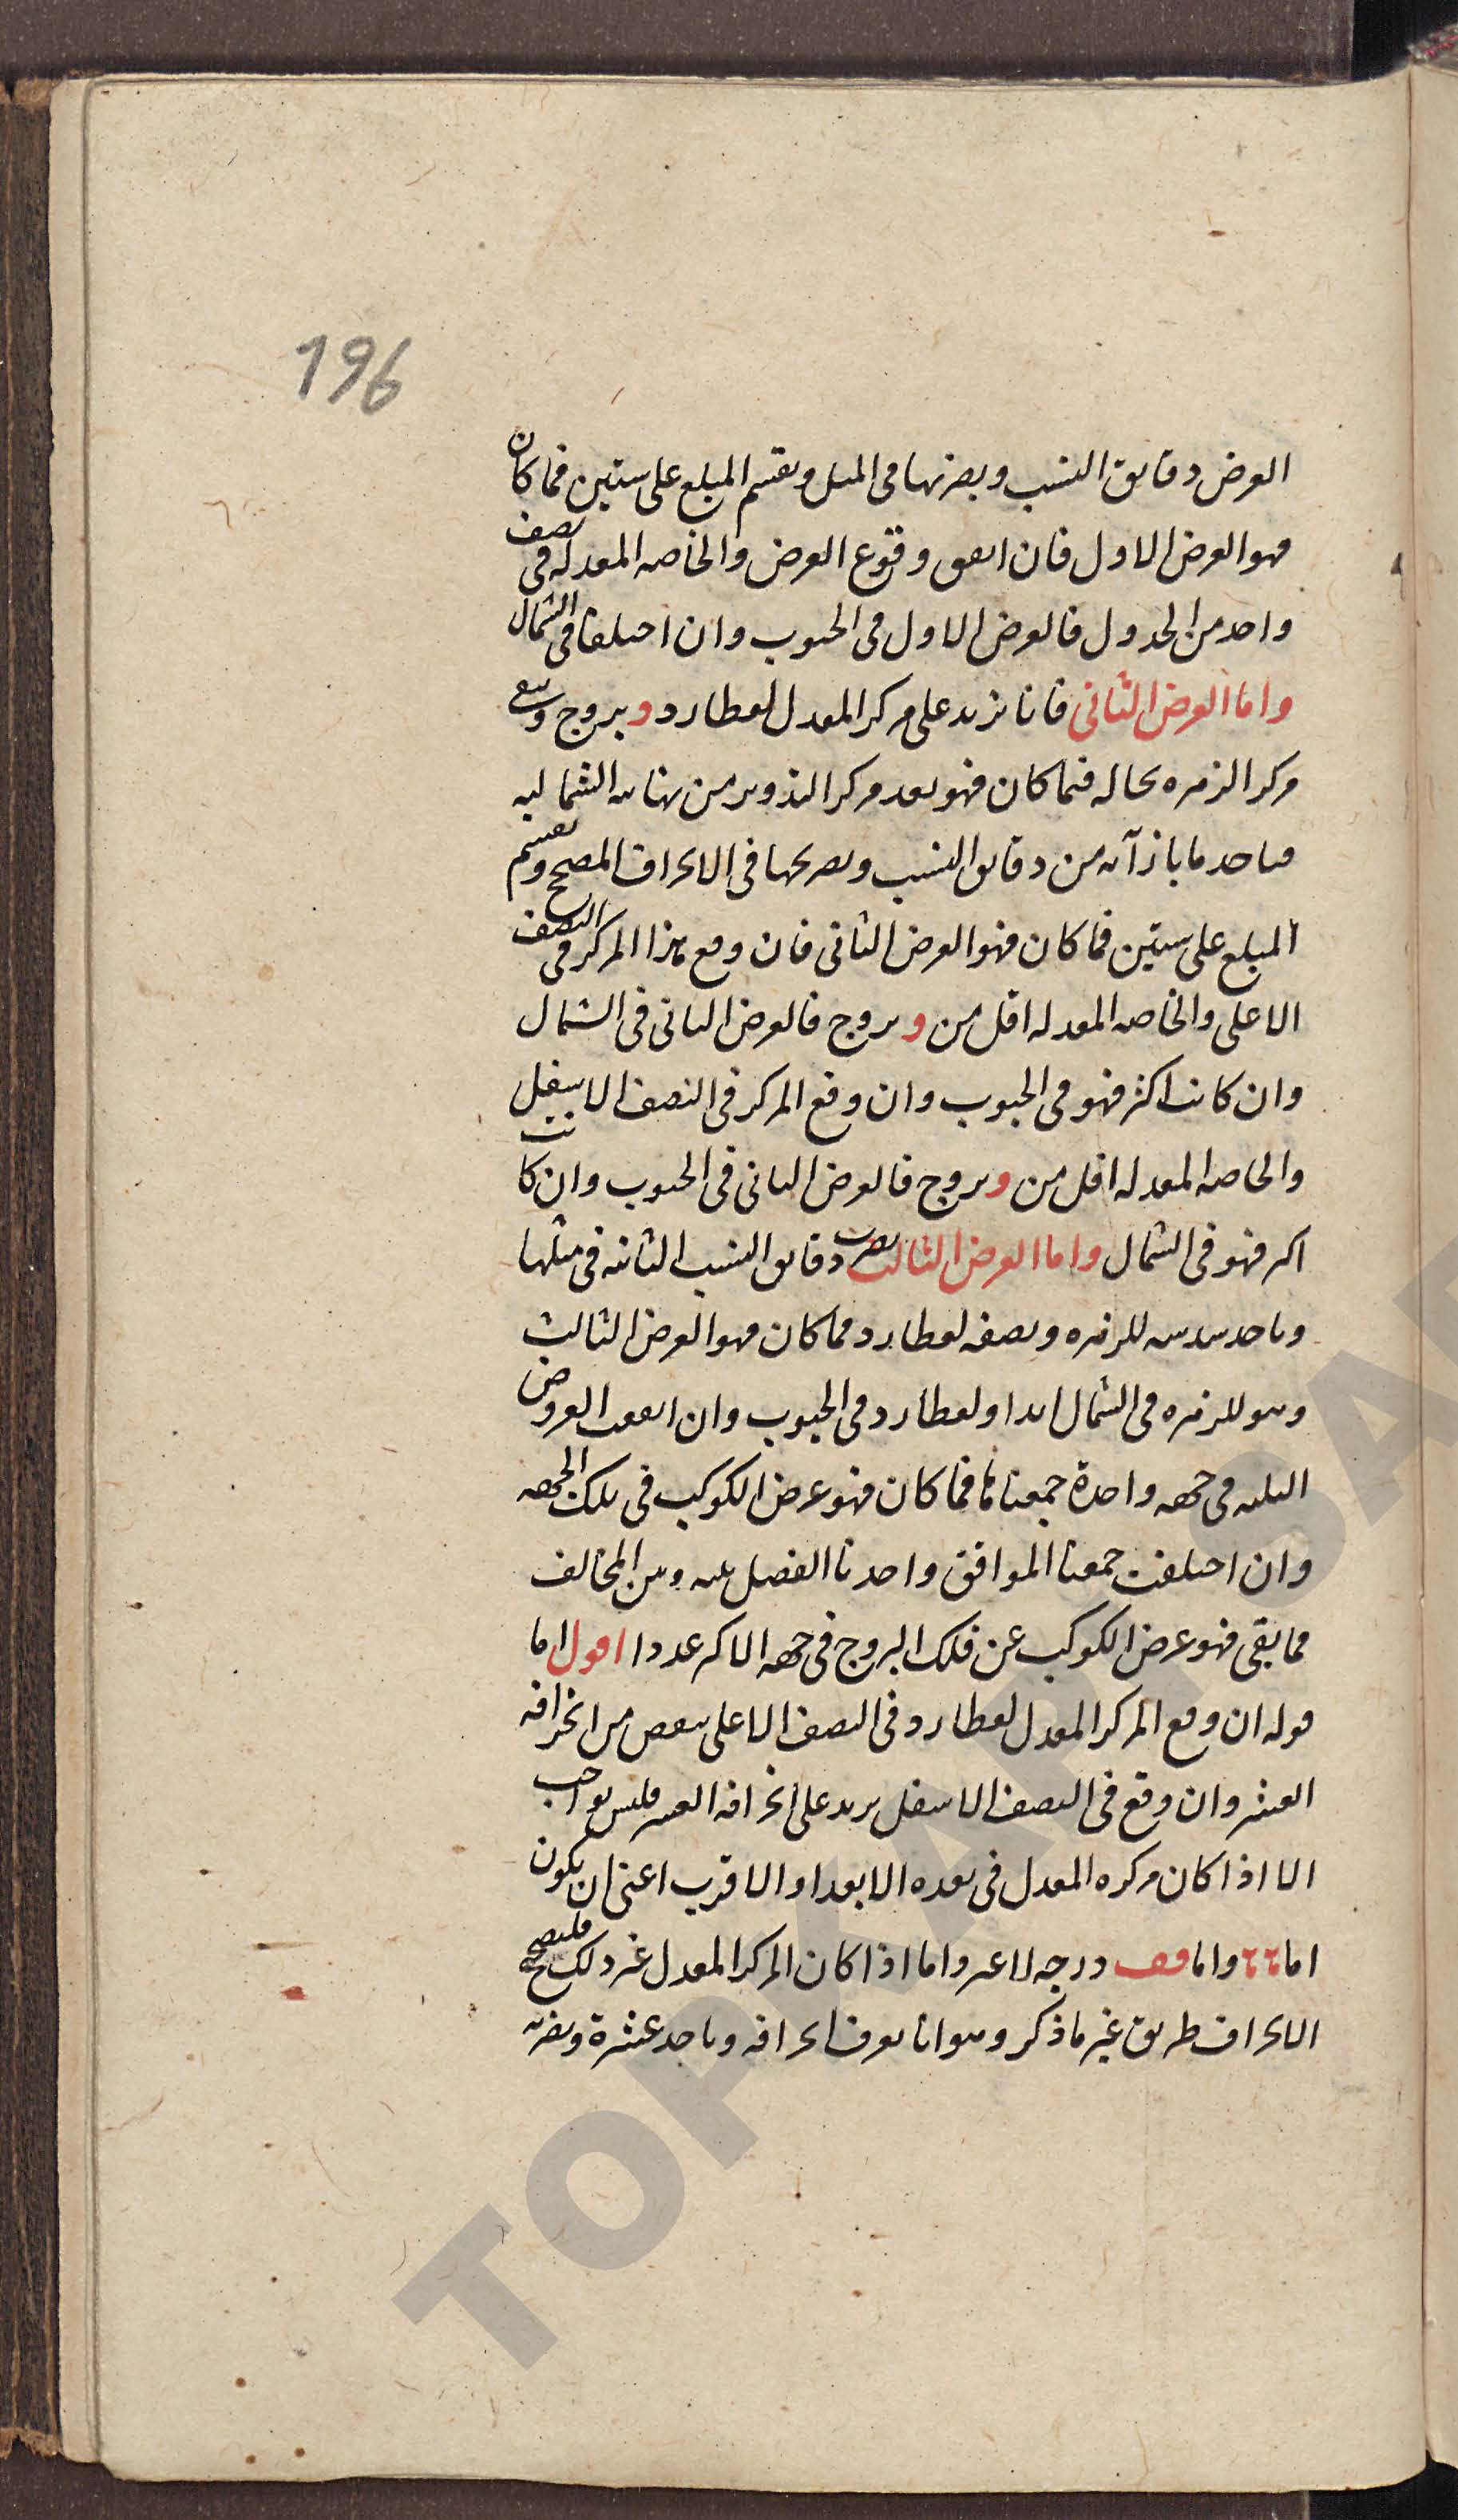 196
العرض دقايق النسب ويضربها في الميل ويقسم المبلغ على ستين فما كان
فهو العرض الاول فان اتفق وقوع العرض والخاصه المعدله في نصف
واحد من الجدول فالعرض الاول في الجنوب وان اختلفا في الشمال
واما العرض الثاني فانا نزيد على مركز المعدل لعطارد و بروج
مركز الزهره بحاله فما كان فهو بعد مركز التدوير من نهايه الشماليه
فناخذ ما بازآئه من دقايق النسب ونضربها في الانحراف المصحح ونقسم
المبلغ على ستين فما كان فهو العرض الثاني فان وقع هذا المركز في النصف
الاعلى والخاصه المعدله اقل من و بروج فالعرض الثاني في الشمال
وان كانت اكثر فهو في الجنوب وان وقع المركز في النصف الاسفل
والخاصه المعدله اقل من و بروج فالعرض الثاني في الجنوب وان كانت
اكثر فهو في الشمال واما العرض الثالث نضرب دقايق النسب الثانيه في مثلها
وناخذ سدسه للزهره ونصفه لعطارد فما كان فهو العرض الثالث
وهو للزهره في الشمال ابدا ولعطارد في الجنوب وان اتفقت العروض
الثلثه في جهه واحدة جمعناها فما كان فهو عرض الكوكب في تلك الجهه
وان اختلفت جمعنا الموافق واخذنا الفضل بينه وبين المخالف
فما بقي فهو عرض الكوكب عن فلك البروج في جهه الاكثر عددا اقول اما
قوله ان وقع المركز المعدل لعطارد في النصف الاعلى ينقص من انحرافه
العشر وان وقع في النصف الاسفل يزيد على انحرافه العشر فليس بواجب
الا اذا كان مركزه المعدل في بعده الابعد او الاقرب اعني ان يكون
اما واما قف درجه لا غير واما اذا كان المركز المعدل غير ذلك فلتصحيح
الانحراف طريق غير ما ذكر وهو انا نعرف انحرافه وناخذ عشرة ونضربه
TOPKAPI SA